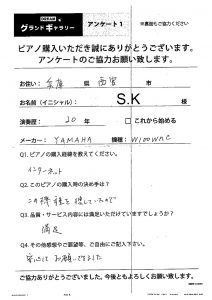 グランドギャラリー アンケート1 ※裏面もご協力ください
ピアノ購入いただき誠にありがとうございます。
アンケートのご協力お願い致します。
お住い: 兵庫 県 西宮 市
お名前(イニシャル): S.K 様
演奏歴: 20 年 □これから始める
メーカー: YAMAHA 機種: W100WnC
Q1. ピアノの購入経緯を教えてください。
インターネット
Q2. このピアノの購入時の決め手は?
この機種を探していたので
Q3. 品質・サービス内容には満足いただけていますでしょうか?
満足
Q4. その他感想やご要望等、ご自由にご記入下さい。
安心してお願いできました
ご協力ありがとうございました。今後ともよろしくお願い致します。